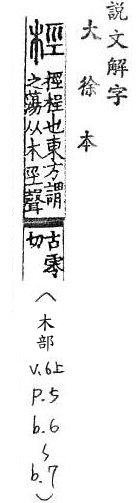 說文解字
大徐本
桱
桱桯也東方謂
之蕩从木巠聲
古零
切
(木部
V.6上
P.5
b.6
~
b.7)